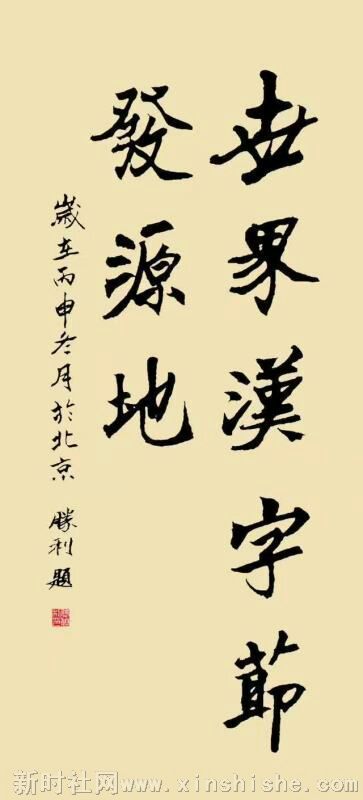 世界漢字節
發源地
歲在丙申冬月於北京 勝利題
新时社网 www.xinshishe.com